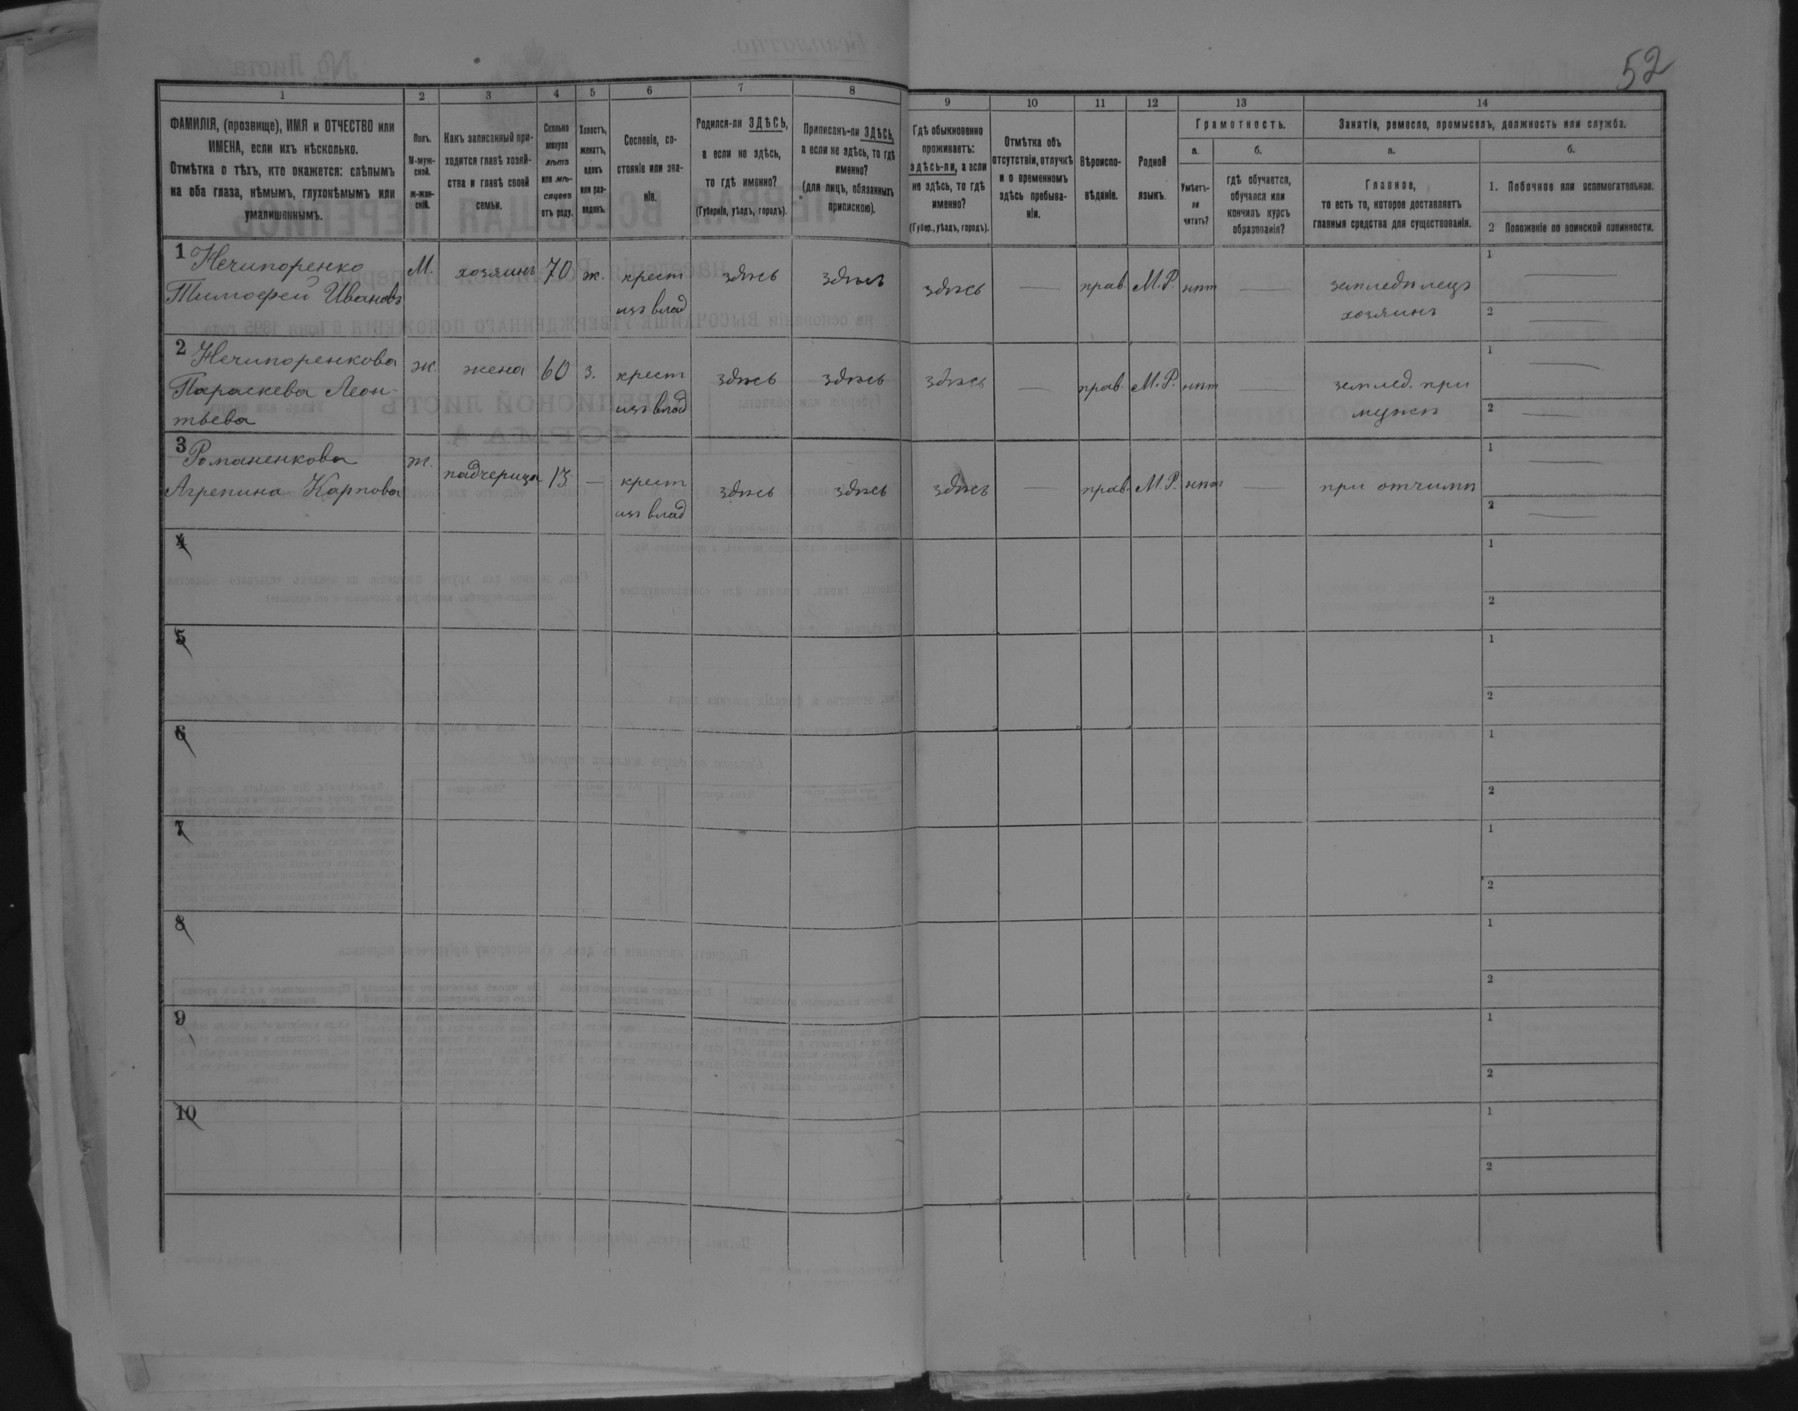 52
1
2
3
4
5
6
7
8
9
10
11
12
13
14
ФАМИЛІЯ, (прозвище), ИМЯ и ОТЧЕСТВО или
ИМЕНА, если ихъ нѣсколько.
Отмѣтка о тѣхъ, кто окажется: слѣпымъ
на оба глаза, нѣмымъ, глухонѣмымъ или
умалишеннымъ.
Полъ.
М-муж-
ской.
ж-жен-
скій.
Какъ записанный при-
ходится главѣ хозяй-
ства и главѣ своей
семьи.
Сколько
минуло
лѣтъ
или мѣ-
сяцевъ
отъ роду.
Холостъ,
женатъ,
вдовъ
или раз-
веденъ.
Сословіе, со-
стояніе или зва-
ніе.
Родился-ли ЗДѢСЬ,
а если не здѣсь,
то гдѣ именно?
(Губернія, уѣздъ, городъ).
Приписанъ-ли ЗДѢСЬ,
а если не здѣсь, то гдѣ
именно?
(для лицъ, обязанныхъ
припискою).
Гдѣ обыкновенно
проживаетъ:
здѣсь-ли, а если
не здѣсь, то гдѣ
именно?
(Губер., уѣздъ, городъ).
Отмѣтка объ
отсутствіи, отлучкѣ
и о временномъ
здѣсь пребыва-
ніи.
Вѣроиспо-
вѣданіе.
Родной
языкъ.
Грамотность.
а.
Умѣетъ-
ли
читать?
б.
гдѣ обучается,
обучался или
кончилъ курсъ
образованія?
Занятіе, ремесло, промыселъ, должность или служба.
а.
Главное,
то есть то, которое доставляетъ
главныя средства для существованія.
б.
1. Побочное или вспомогательное.
2 Положеніе по воинской повинности.
1 Нечипоренко
Тимофей Ивановъ
М.
хозяинъ
70
ж.
крест
изъ влад
здѣсь
здѣсь
здѣсь
—
прав
М.Р.
нѣт
—
земледѣлецъ
хозяинъ
1 —
2 —
2 Нечипоренкова
Параскева Леон-
тьева
ж.
жена
60
з.
крест
изъ влад
здѣсь
здѣсь
здѣсь
—
прав.
М.Р.
нѣт
—
землед. при
мужѣ
1 —
2 —
3 Романенкова
Агрепина Карпова
ж.
падчерица
13
—
крест
изъ влад
здѣсь
здѣсь
здѣсь
—
прав.
М.Р.
нѣт
—
при отчимѣ
1 —
2 —
4
1
2
5
1
2
6
1
2
7
1
2
8
1
2
9
1
2
10
1
2